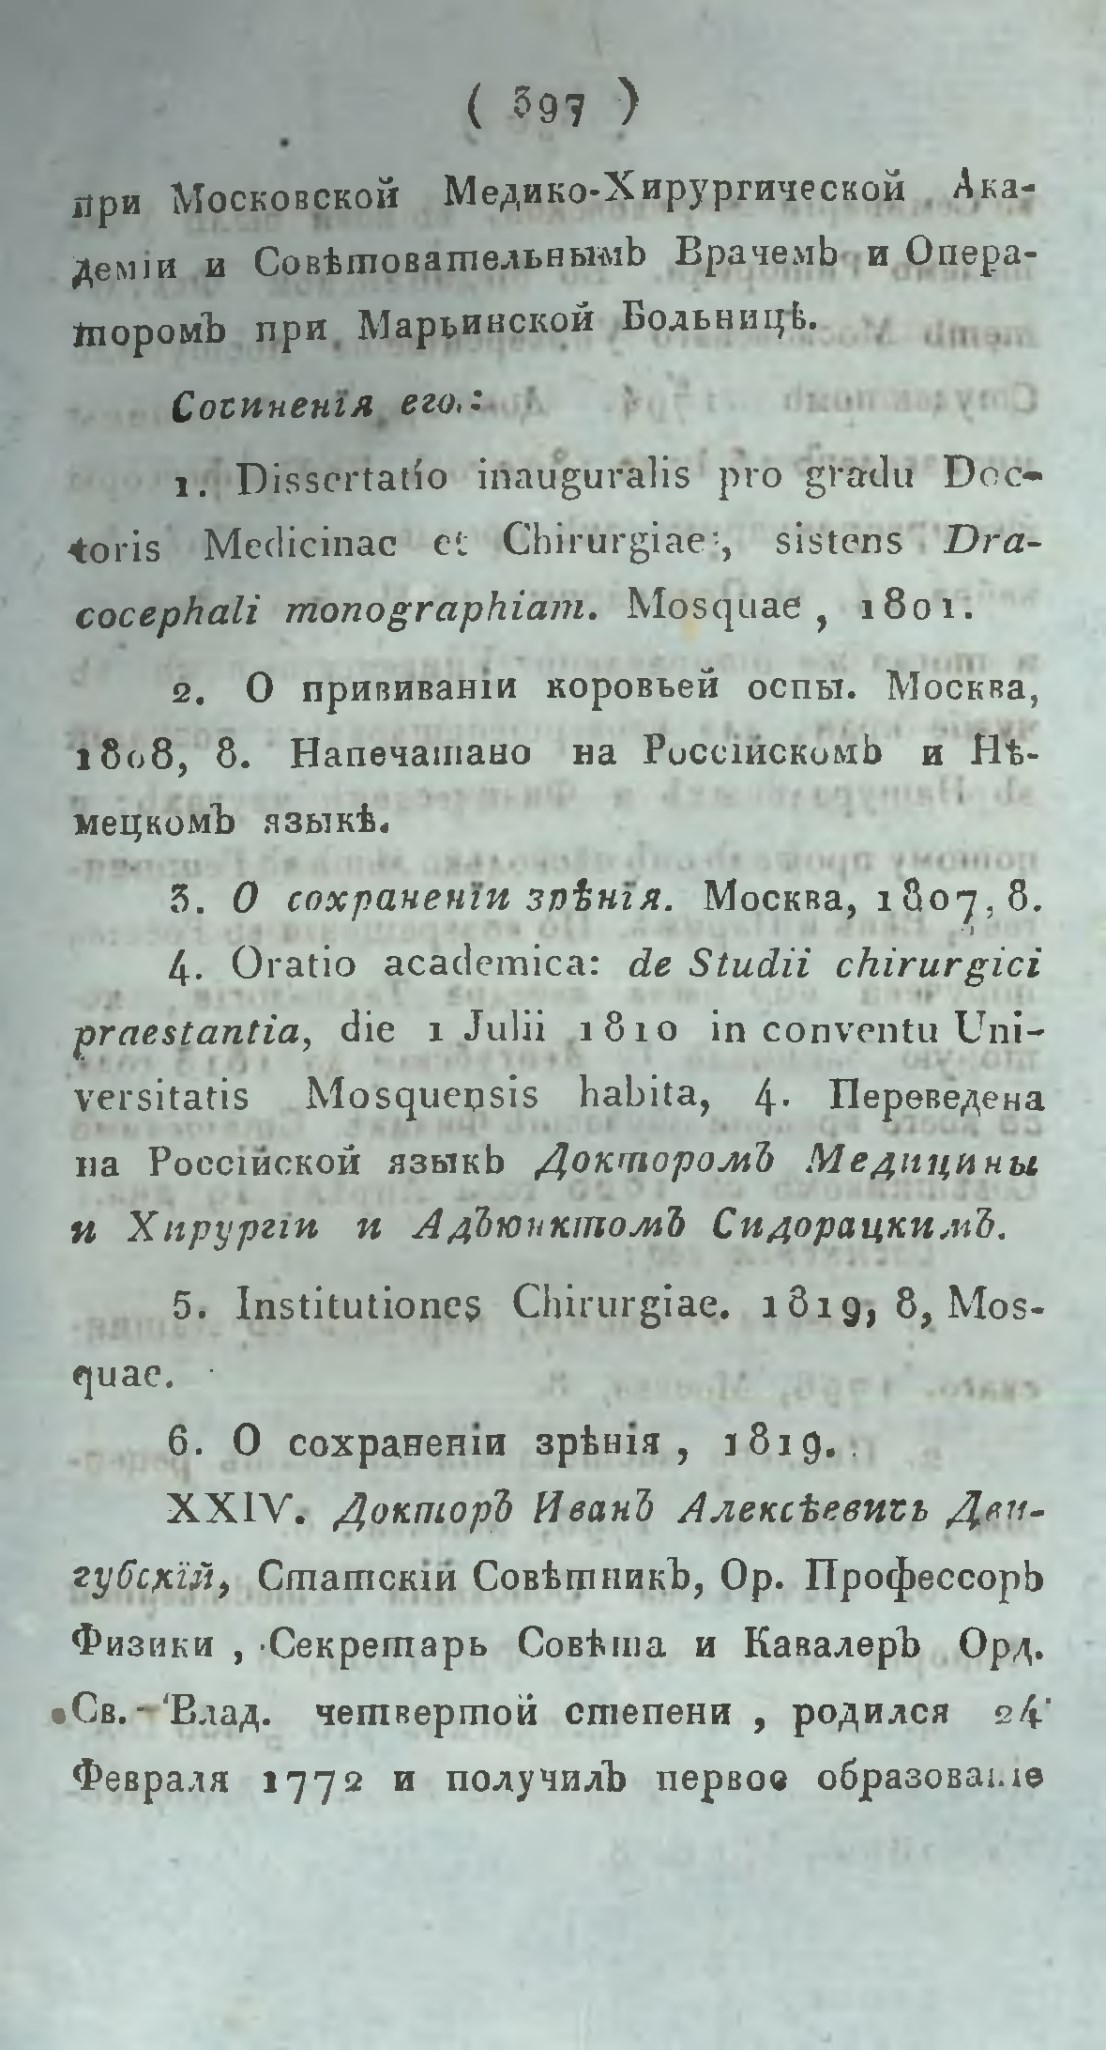 ( 397 )
при Московской Медико-Хирургической Ака-
деміи и Совѣтовательнымъ Врачемъ и Опера-
торомъ при Марьинской Больницѣ.
Сочиненія его:
1. Dissertatio inauguralis pro gradu Doc-
toris Medicinae et Chirurgiae, sistens Dra-
cocephali monographiam. Mosquae, 1801.
2. О прививаніи коровьей оспы. Москва,
1808, 8. Напечатано на Россійскомъ и Нѣ-
мецкомъ языкѣ.
3. О сохраненіи зрѣнія. Москва, 1807, 8.
4. Oratio academica: de Studii chirurgici
praestantia, die 1 Julii 1810 in conventu Uni-
versitatis Mosquensis habita, 4. Переведена
на Россійской языкъ Докторомъ Медицины
и Хирургіи и Адъюнктомъ Сидорацкимъ.
5. Institutiones Chirurgiae. 1819, 8, Mos-
quae.
6. О сохраненіи зрѣнія, 1819.
XXIV. Докторъ Иванъ Алексѣевичь Дви-
губскій, Статскій Совѣтникъ, Ор. Профессоръ
Физики, Секретарь Совѣта и Кавалеръ Орд.
Св. Влад. четвертой степени, родился 24
Февраля 1772 и получилъ первое образованіе